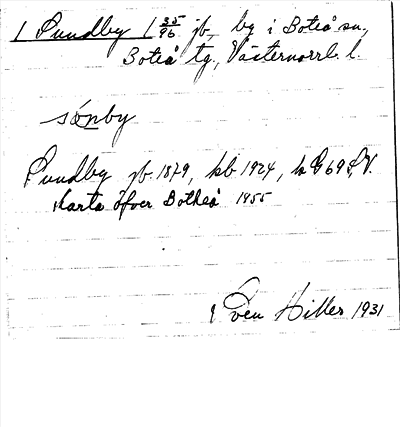 1 Sundby 1 35/96 jb, by i Boteå sn.,
Boteå tg., Västernorrl. l.
sónby
Sundby jb 1879, kb 1924, k G 69 S.V.
Karta öfver Botheå 1955
Sven Hiller 1931